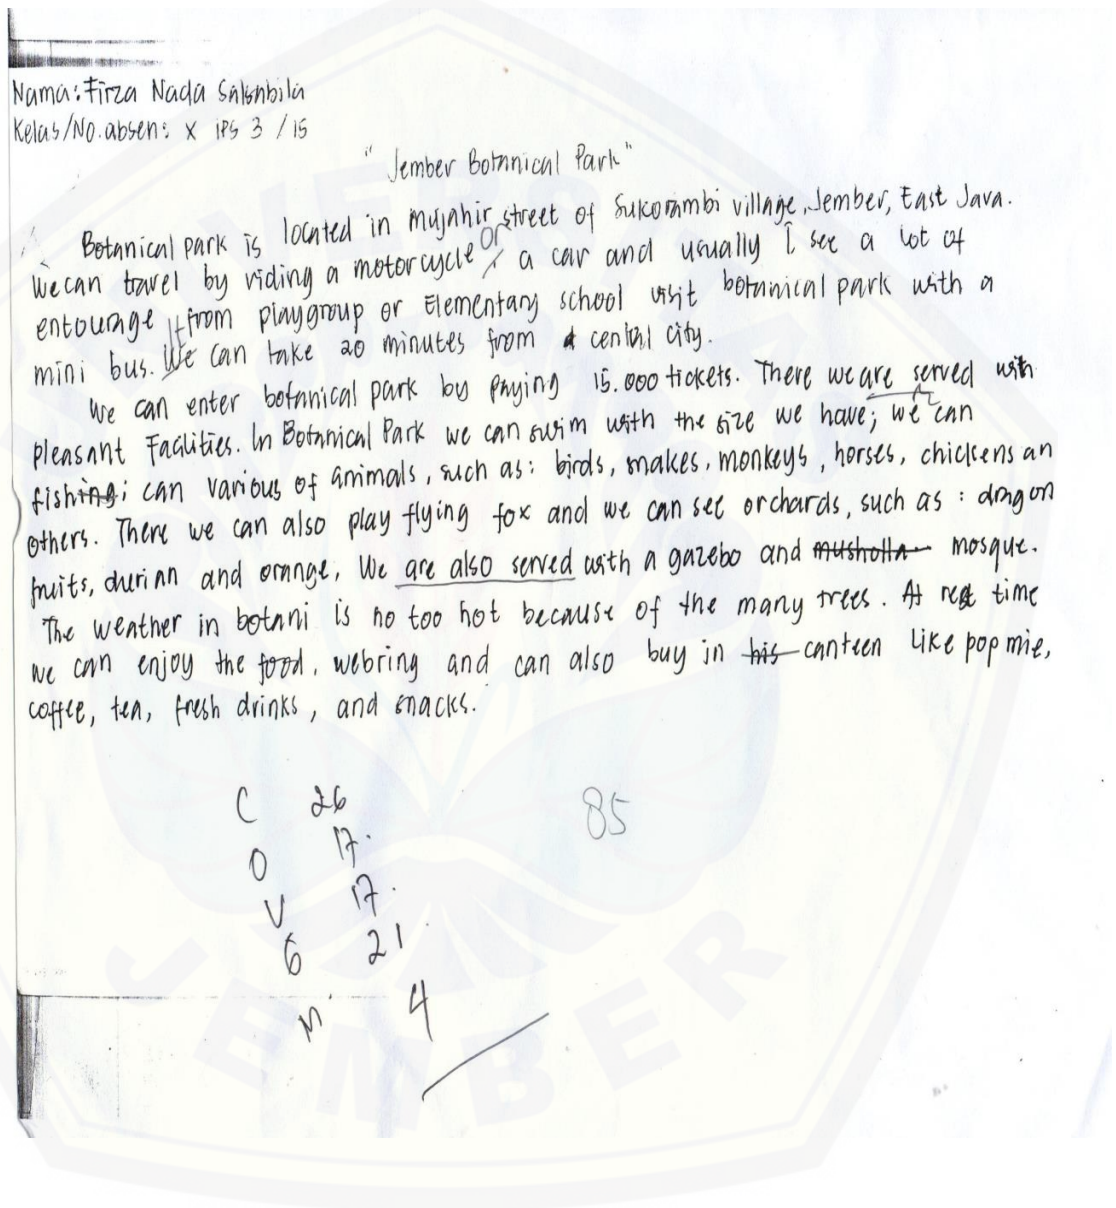 Nama: Firza Nada Salsabila
Kelas/No.absen: X IPS 3 / 15
"Jember Botanical Park"
Botanical park is located in mujahir street of Sukorambi village, Jember, East Java.
We can travel by riding a motorcycle or a car and usually I see a lot of
entourage from playgroup or Elementary school visit botanical park with a
mini bus. It We can take 20 minutes from central city.
We can enter botanical park by paying 15.000 tickets. There we are served with
pleasant Facilities. In Botanical Park we can swim with the size we have; we can
fishing; can various of animals, such as: birds, snakes, monkeys, horses, chickens an
others. There we can also play flying fox and we can see orchards, such as: dragon
fruits, durian and orange, We are also served with a gazebo and musholla mosque.
The weather in botani is no too hot because of the many trees. At rest time
we can enjoy the food, webring and can also buy in his canteen like pop mie,
coffee, tea, fresh drinks, and snacks.
C 26
O 17.
V 17.
G 21.
M 4
85
UNIVERSITAS
JEMBER